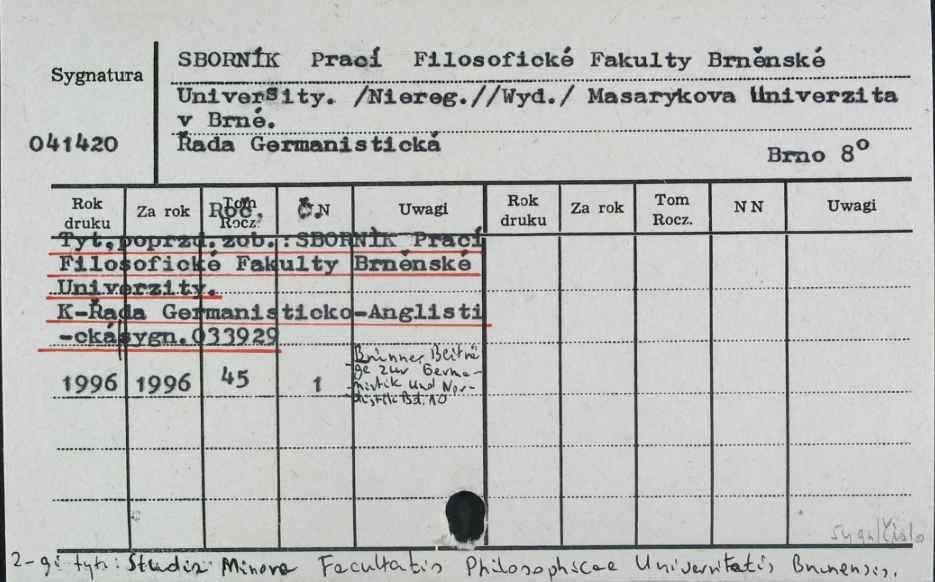 Sygnatura
041420
SBORNÍK Prací Filosofické Fakulty Brněnské
University. /Niereg.//Wyd./ Masarykova Univerzita
v Brně.
Řada Germanistická
Brno 8º
Rok druku Za rok Tom Rocz. Roč. Č.N Uwagi Rok druku Za rok Tom Rocz. NN Uwagi
Tyt.poprzd.zob.:SBORNÍK Prací
Filosofické Fakulty Brněnské
Univerzity.
K-Řada Germanisticko-Anglisti
-cká sygn.033929
1996 1996 45 1 Brünner Beiträ
ge zur Germa-
nistik und Nor-
distik Bd. 10
2-gi tyt: Studia Minora Facultatis Philosophicae Universitatis Brunensis.